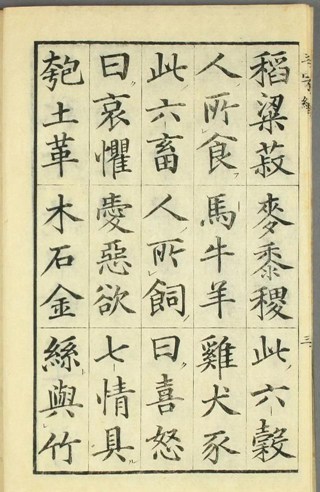 稻粱菽 麥黍稷 此六穀
人所食 馬牛羊 雞犬豕
此六畜 人所飼 曰喜怒
曰哀懼 愛惡欲 七情具
匏土革 木石金 絲與竹
三